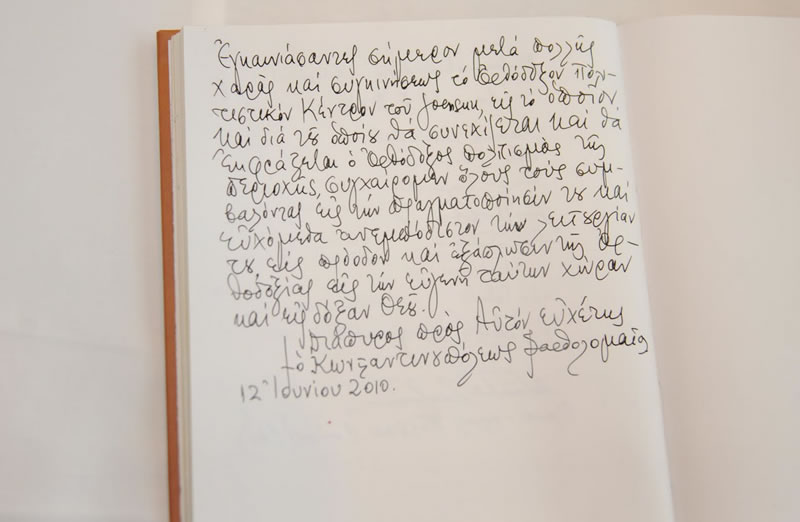 Ἐγκαινιάσαντες σήμερον μετά πολλῆς
χαρᾶς καί συγκινήσεως τό Ὀρθόδοξον Πολι-
τιστικόν Κέντρον τοῦ Joensuu, εἰς τό ὁποῖον
καί διά τοῦ ὁποίου θά συνεχίζεται καί θά
ἐκφράζεται ὁ Ὀρθόδοξος πολιτισμός τῆς
περιοχῆς, συγχαίρομεν ὅλους τούς συμ-
βαλόντας εἰς τήν πραγματοποίησίν του καί
εὐχόμεθα ἀνεμπόδιστον τήν λειτουργίαν
του εἰς πρόοδον καί ἐξάπλωσιν τῆς Ὀρ-
θοδοξίας εἰς τήν εὐγενῆ ταύτην χώραν
καί εἰς δόξαν Θεοῦ.
Διάπυρος πρός Αὐτόν εὐχέτης
† ὁ Κωνσταντινουπόλεως Βαρθολομαῖος
12 Ἰουνίου 2010.